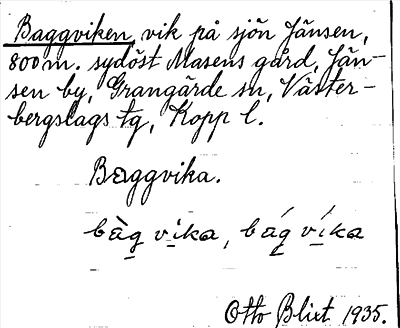 Baggviken, vik på sjön Jänsen,
800 m. sydöst Masens gård, Jän-
sen by, Grangärde sn, Väster-
bergslags tg, Kopp l.
Baggvika.
bàg vika, bág víka
Otto Blixt 1935.